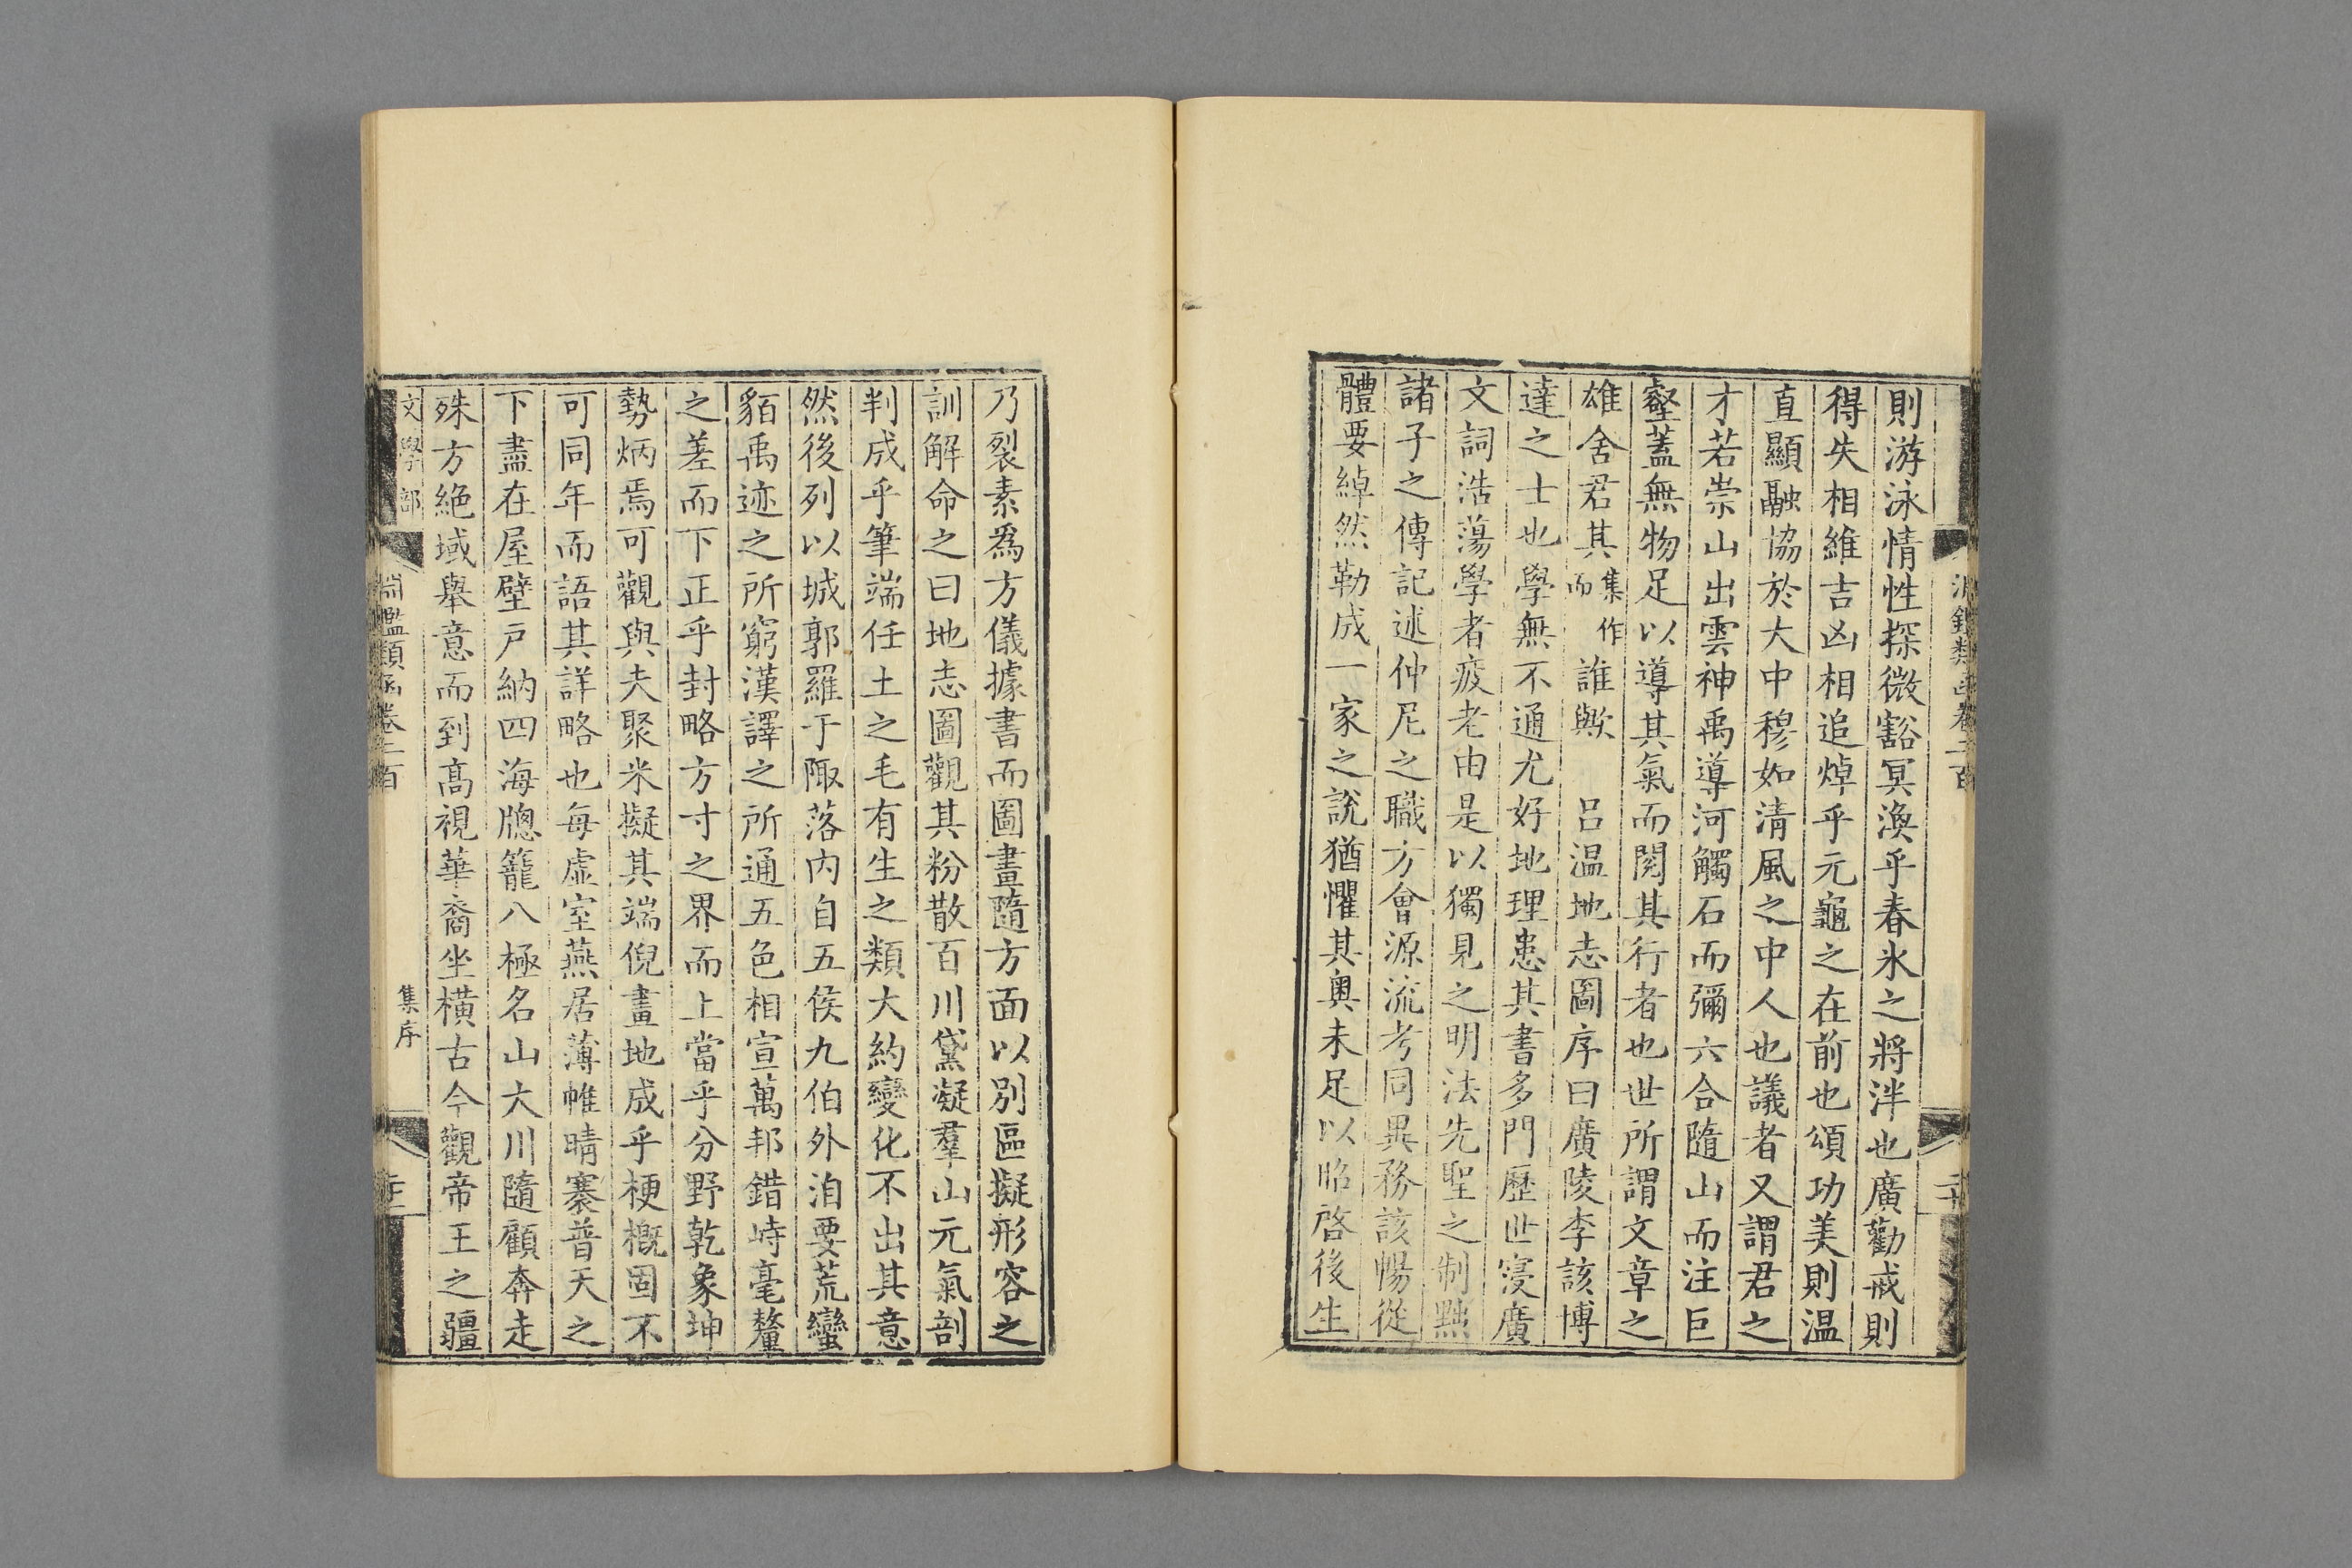 則游泳情性探微豁冥渙乎春氷之將泮也廣勸戒則
得失相維吉凶相追焯乎元龜之在前也頌功美則温
直顯融協於大中穆如清風之中人也議者又謂君之
才若崇山出雲神禹導河觸石而彌六合隨山而注巨
壑蓋無物足以導其氣而閱其行者也世所謂文章之
雄舍君其集作而誰歟　吕温地志圖序曰廣陵李該博
達之士也學無不通尤好地理患其書多門歷世寖廣
文詞浩蕩學者疲老由是以獨見之明法先聖之制黜
諸子之傳記述仲尼之職方會源流考同異務該暢從
體要綽然勒成一家之說猶懼其奧未足以昭啓後生
乃裂素為方儀據書而圖畫隨方面以別區擬形容之
訓解命之曰地志圖觀其粉散百川黛凝羣山元氣剖
判成乎筆端任土之毛有生之類大約變化不出其意
然後列以城郭羅于陬落内自五侯九伯外洎要荒蠻
貊禹迹之所窮漢譯之所通五色相宣萬邦錯峙毫釐
之差而下正乎封略方寸之界而上當乎分野乾象坤
勢炳焉可觀與夫聚米擬其端倪畫地成乎梗概固不
可同年而語其詳略也每虛室燕居薄帷晴褰普天之
下盡在屋壁戸納四海牕籠八極名山大川隨顧奔走
殊方絶域舉意而到高視華裔坐橫古今觀帝王之疆
文學部
淵鑑類函卷二百
集序